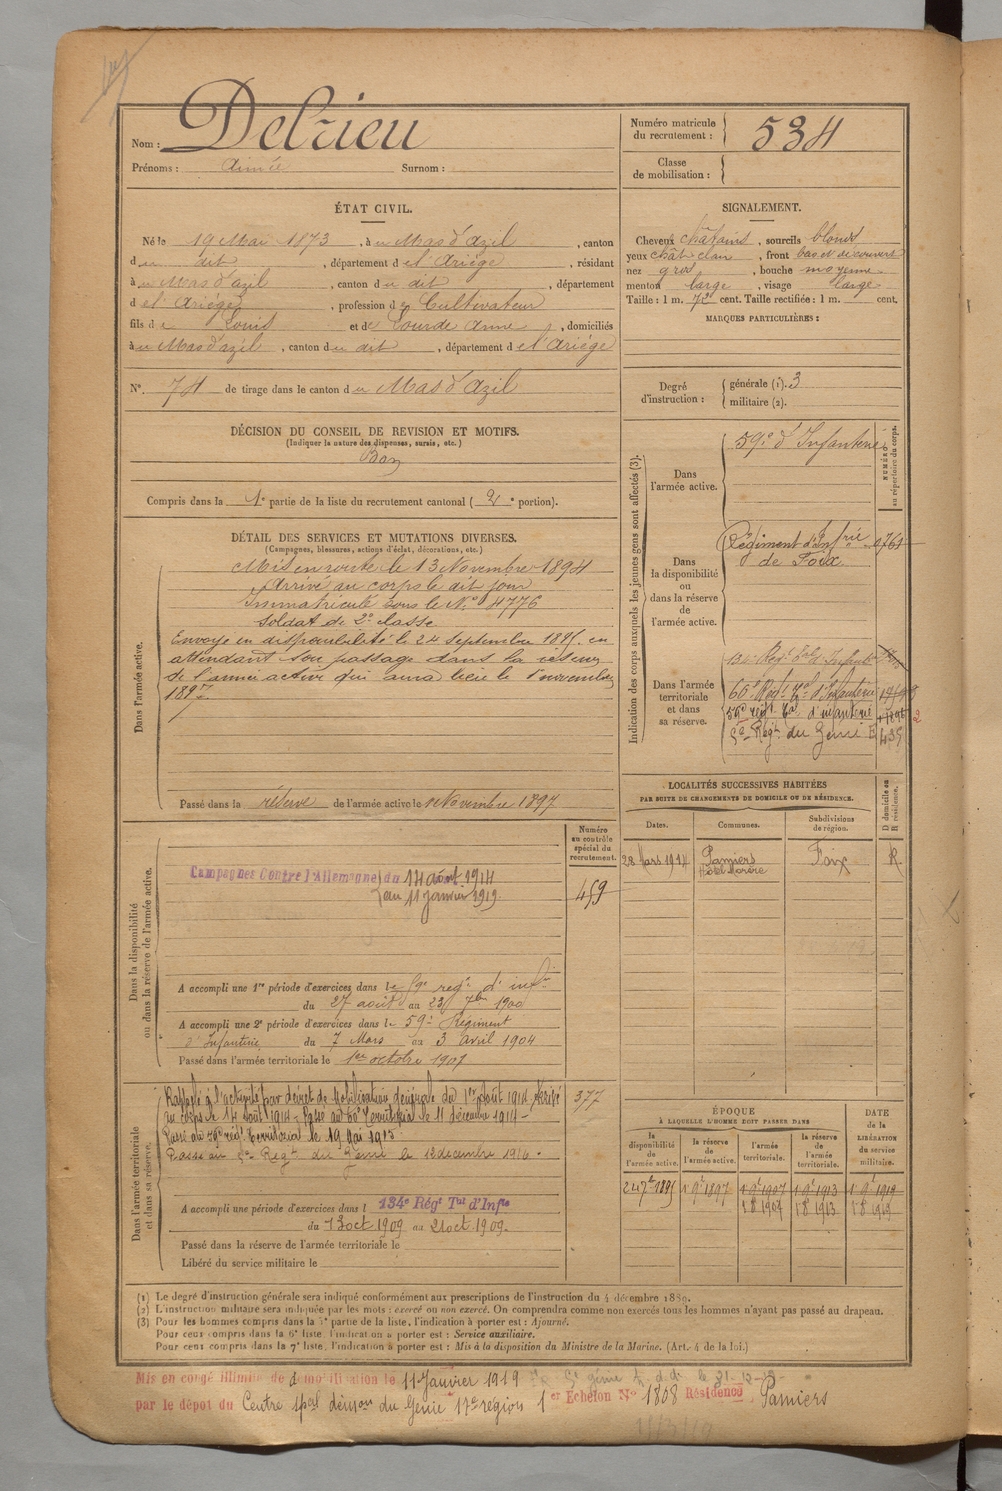 Nom : Delrieu
Prénoms : Aimé Surnom :
Numéro matricule
du recrutement : 534
Classe
de mobilisation :
ÉTAT CIVIL.
Né le 19 Mai 1873, à u Mas d'azil, canton
du dit, département d e l'Ariège, résidant
à u Mas d'azil, canton du dit, département
d e l'Ariège, profession de Cultivateur
fils de Louis et de Lourde Anne, domiciliés
à u Mas d'azil, canton du dit, département de l'Ariège
N° 74 de tirage dans le canton du Mas d'Azil
DÉCISION DU CONSEIL DE REVISION ET MOTIFS.
(Indiquer la nature des dispenses, sursis, etc.)
Bon
Compris dans la 1e partie de la liste du recrutement cantonal (2e portion).
DÉTAIL DES SERVICES ET MUTATIONS DIVERSES.
(Campagnes, blessures, actions d'éclat, décorations, etc.)
Dans l'armée active.
Mis en route le 13 Novembre 1894
Arrivé au corps le dit jour
Immatriculé sous le N° 4776
Soldat de 2e classe
Envoyé en disponibilité le 24 Septembre 1895 en
attendant son passage dans la réserve
de l'armée active qui aura lieu le 1 novembre
1897
Passé dans la réserve de l'armée active le 1 Novembre 1897
Numéro
au contrôle
spécial du
recrutement.
459
Dans la disponibilité
ou dans la réserve de l'armée active.
Campagnes Contre l'Allemagne du 14 août 1914
au 11 janvier 1919
A accompli une 1re période d'exercices dans le 59e regt d'infie
du 27 août au 23 7bre 1900
A accompli une 2e période d'exercices dans le 59e Régiment
d'Infanterie du 7 Mars au 3 avril 1904
Passé dans l'armée territoriale le 1er octobre 1907
Dans l'armée territoriale
et dans sa réserve.
Rappelé à l'activité par décret de Mobilisation Générale du 1er Août 1914 Arrivé
au corps le 14 Août 1914 - Passé au 60e Territorial le 11 décembre 1914 -
Passé au régt territorial le 19 Mai 1915
Passé au 2e Régt du Génie le 12 décembre 1916.
377
A accompli une période d'exercices dans l 134e Régt Tal d'Infie
du 13 oct 1909 au 21 oct 1909.
Passé dans la réserve de l'armée territoriale le
Libéré du service militaire le
SIGNALEMENT.
Cheveux châtains, sourcils blonds
yeux chât clair, front bas et découvert
nez gros, bouche moyenne
menton large, visage large
Taille : 1 m. 72 cent. Taille rectifiée : 1 m. cent.
MARQUES PARTICULIÈRES :
Degré
d'instruction :
générale (1). 3
militaire (2).
Indication des corps auxquels les jeunes gens sont affectés (3).
NUMÉRO
au répertoire du corps.
Dans
l'armée active.
59e d'Infanterie
Dans
la disponibilité
ou
dans la réserve
de
l'armée active.
Régiment d'Infrie 0761
de Foix
Dans l'armée
territoriale
et dans
sa réserve.
134e Régt Tal d'Infanterie
60e Régt Tal d'Infanterie
régt Tal d'infanterie
2e Régt du Génie E 435
LOCALITÉS SUCCESSIVES HABITÉES
PAR SUITE DE CHANGEMENTS DE DOMICILE OU DE RÉSIDENCE.
D domicile ou
R résidence.
Dates. Communes. Subdivisions
de région.
28 Mars 1914 Pamiers Foix R.
ÉPOQUE
À LAQUELLE L'HOMME DOIT PASSER DANS
DATE
de la
LIBÉRATION
du service
militaire.
la
disponibilité
de
l'armée active.
la réserve
de
l'armée active.
l'armée
territoriale.
la réserve
de
l'armée
territoriale.
24 7bre 1895 1 9e 1897 1 9e 1907 1 9e 1913 1 9e 1919
1 8 1907 1 8 1913 1 8 1919
(1) Le degré d'instruction générale sera indiqué conformément aux prescriptions de l'instruction du 4 décembre 1889.
(2) L'instruction militaire sera indiquée par les mots : exercé ou non exercé. On comprendra comme non exercés tous les hommes n'ayant pas passé au drapeau.
(3) Pour les hommes compris dans la 5e partie de la liste, l'indication à porter est : Ajourné.
Pour ceux compris dans la 6e liste, l'indication à porter est : Service auxiliaire.
Pour ceux compris dans la 7e liste, l'indication à porter est : Mis à la disposition du Ministre de la Marine. (Art. 4 de la loi.)
Mis en congé illimité de démobilisation le 11 Janvier 1919
par le dépôt du Centre spal démon du Génie 17e région 1er Echelon N° 1808 Résidence Pamiers